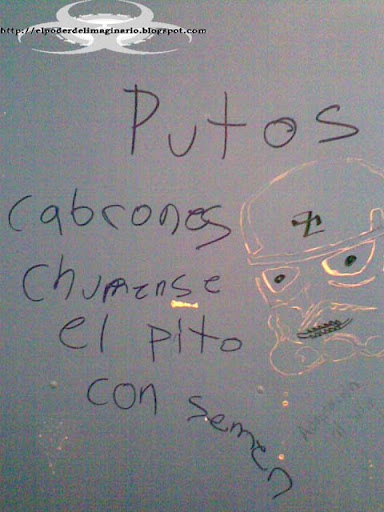 http://elpoderdelimaginario.blogspot.com
Putos
cabrones
chupense
el pito
con semen